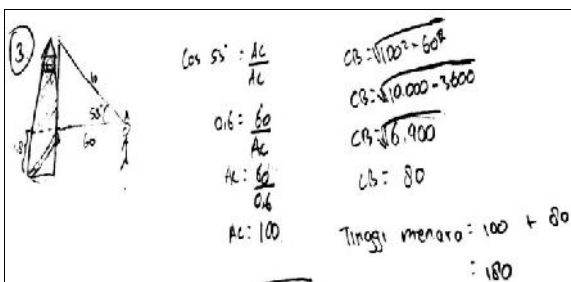 3.
53°
60
Cos 53° = AC
AC
0,6 = 60
AC
AC = 60
0,6
AC = 100
CB = √100² - 60²
CB = √10.000 - 3600
CB = √6.400
CB = 80
Tinggi menara = 100 + 80
= 180